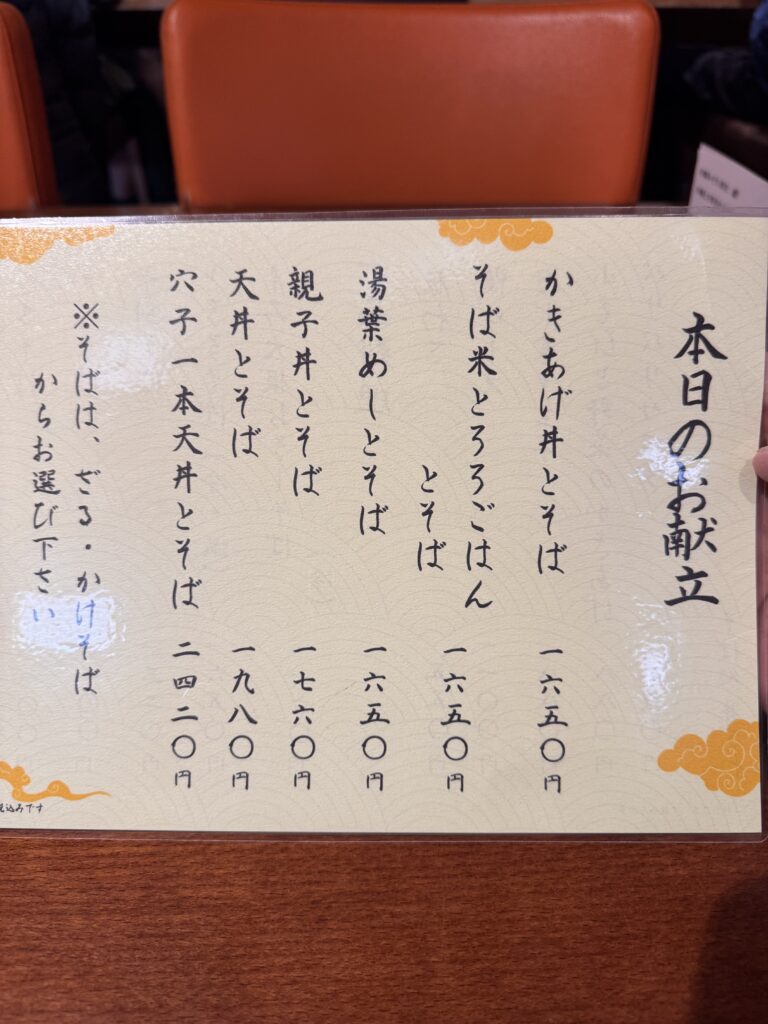 本日のお献立
かきあげ丼とそば 一六五〇円
そば米とろろごはん
とそば 一六五〇円
湯葉めしとそば 一六五〇円
親子丼とそば 一七六〇円
天丼とそば 一九八〇円
穴子一本天丼とそば 二四二〇円
※そばは、ざる・かけそば
からお選び下さい
税込みです